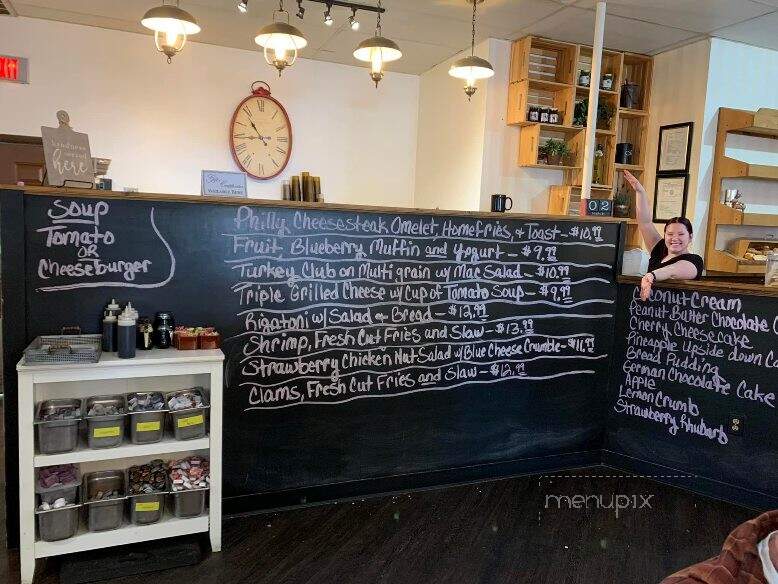 kindness
served
here
Gift Certificates
AVAILABLE HERE
02
Soup
Tomato
OR
Cheeseburger
Philly Cheesesteak Omelet, Homefries, & Toast - $10.99
Fruit, Blueberry Muffin and Yogurt - $9.99
Turkey Club on Multi grain w/ Mac Salad - $10.99
Triple Grilled Cheese w/ Cup of Tomato Soup - $9.99
Rigatoni w/ Salad & Bread - $12.99
Shrimp, Fresh Cut Fries and Slaw - $13.99
Strawberry Chicken Nut Salad w/ Blue Cheese Crumble - $11.99
Clams, Fresh Cut Fries and Slaw - $12.99
Coconut Cream
Peanut Butter Chocolate
Cherry Cheesecake
Pineapple Upside Down
Bread Pudding
German Chocolate Cake
Apple
Lemon Crumb
Strawberry Rhubarb
menupix